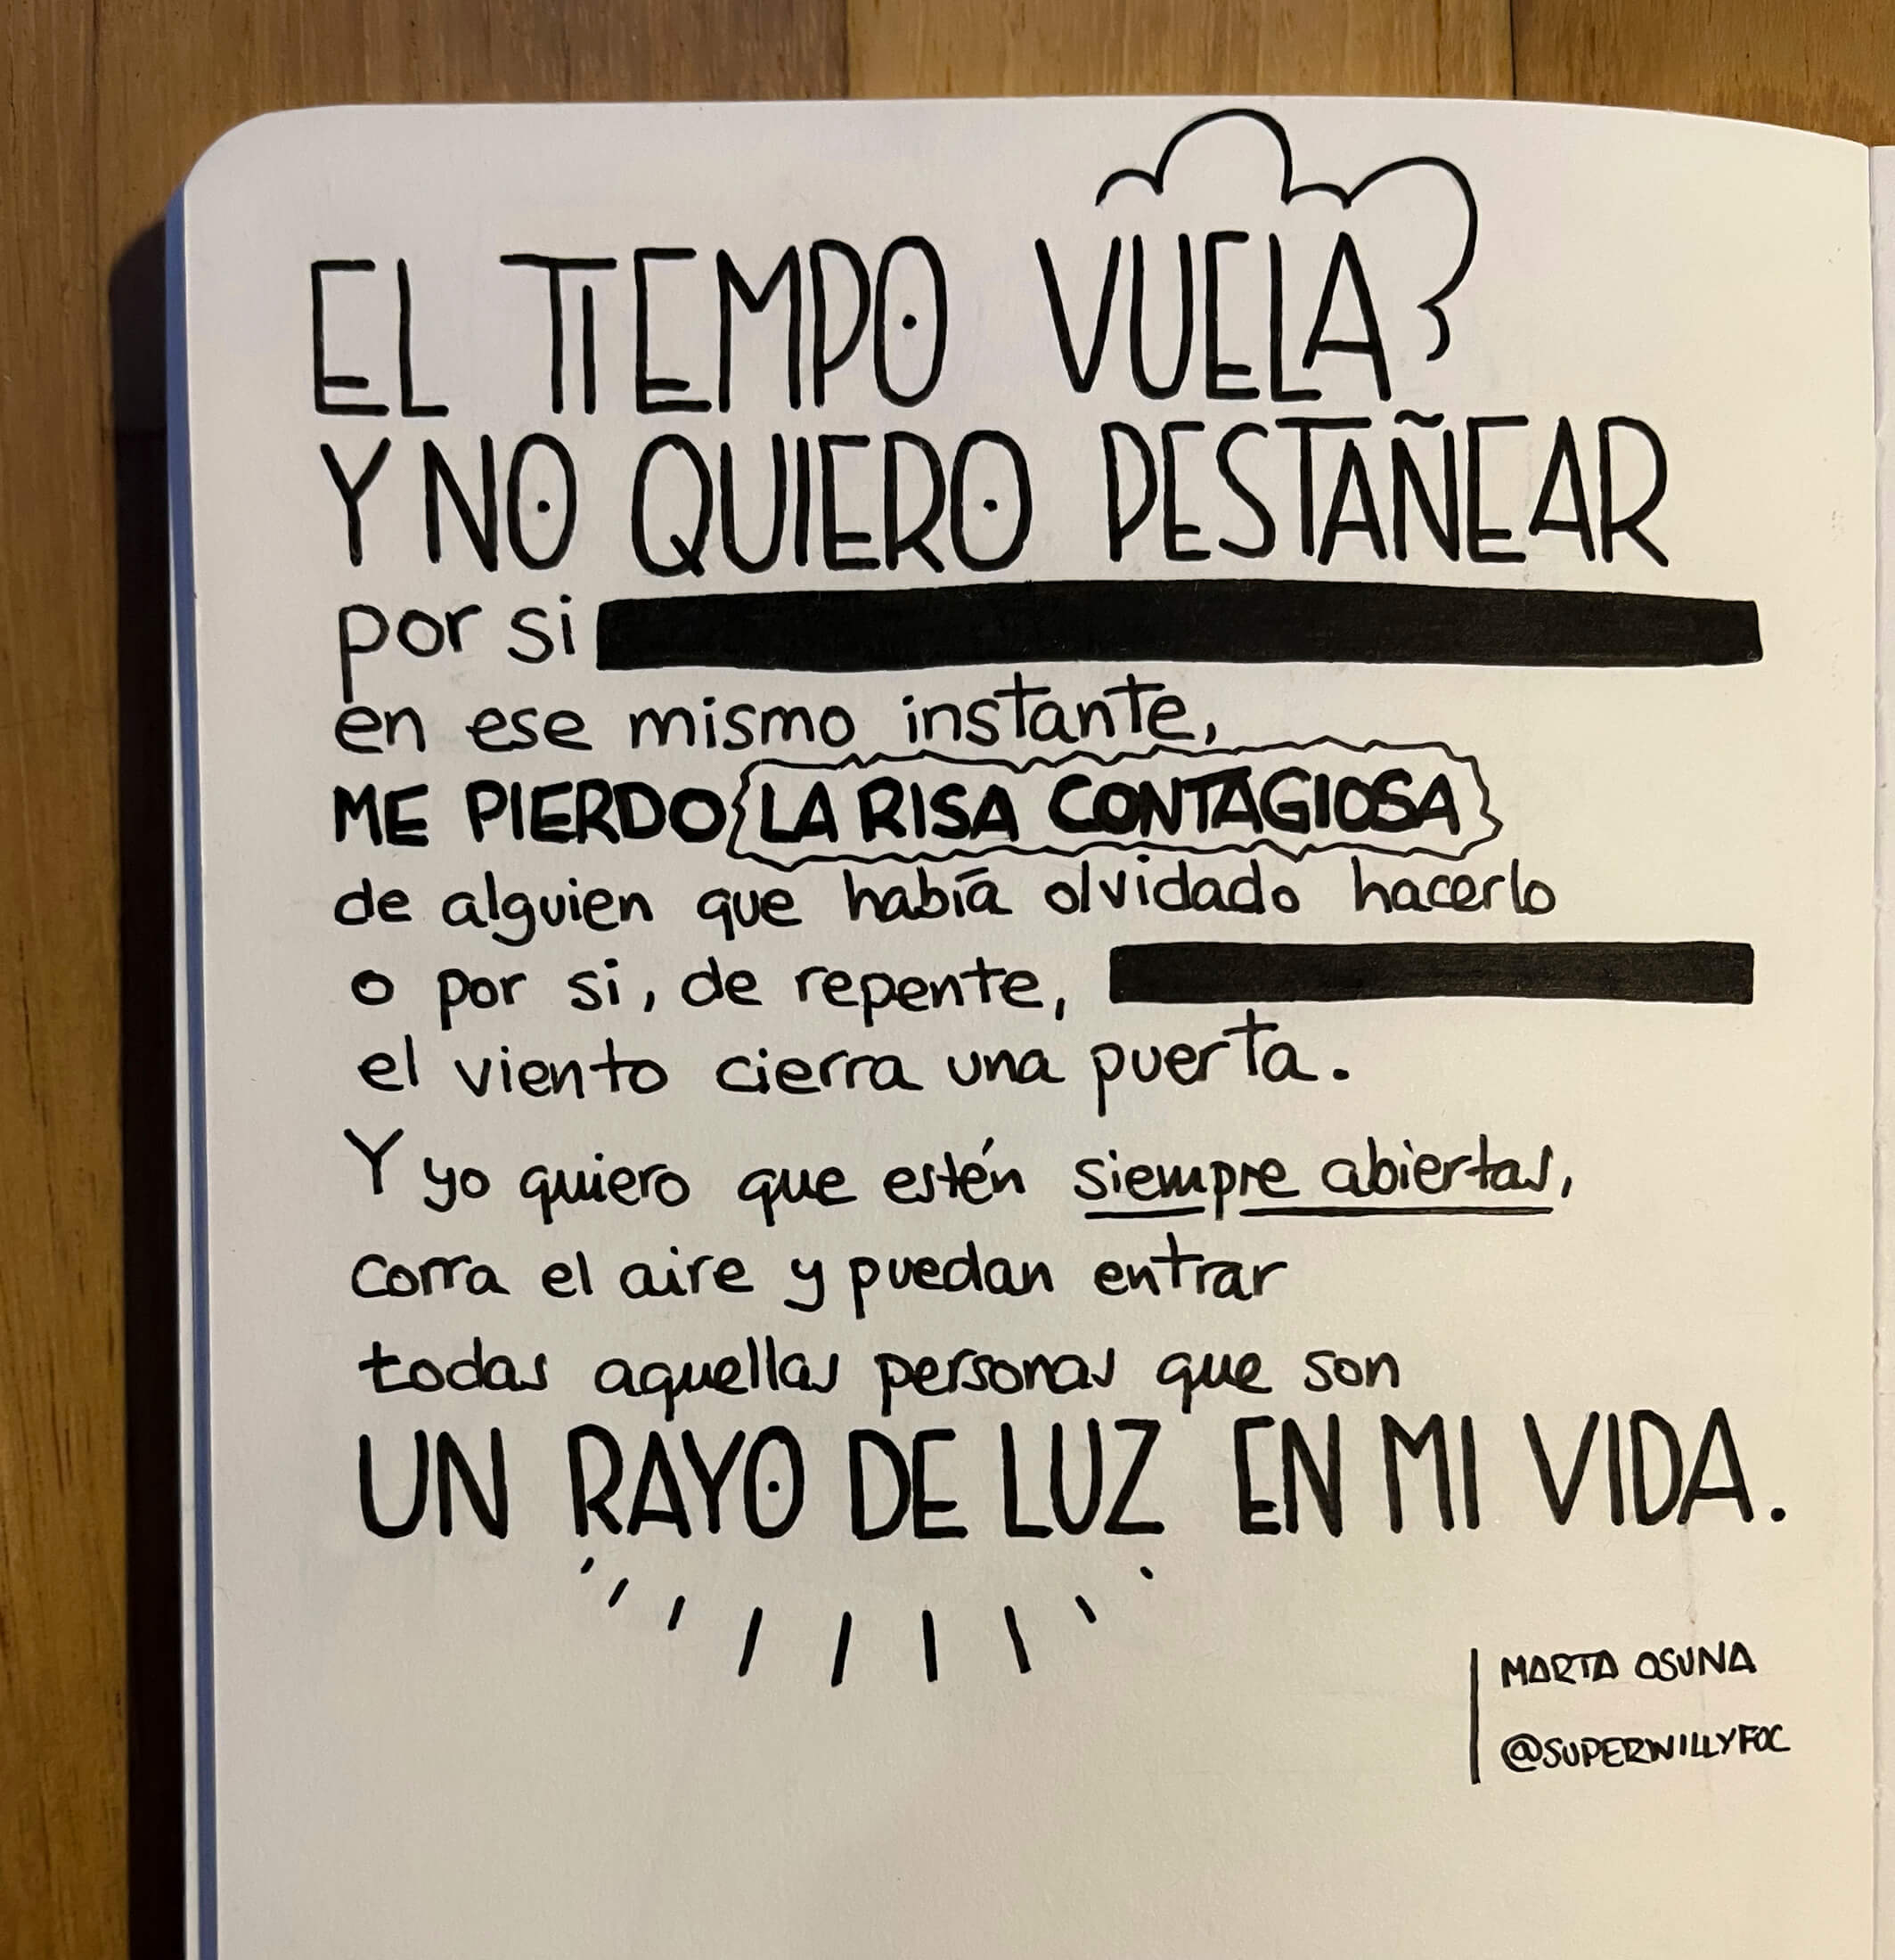 EL TIEMPO VUELA
Y NO QUIERO PESTAÑEAR
por si
en ese mismo instante,
ME PIERDO LA RISA CONTAGIOSA
de alguien que había olvidado hacerlo
o por si, de repente,
el viento cierra una puerta.
Y yo quiero que estén siempre abiertas,
corra el aire y puedan entrar
todas aquellas personas que son
UN RAYO DE LUZ EN MI VIDA.
MARTA OSUNA
@SUPERWILLYFOC